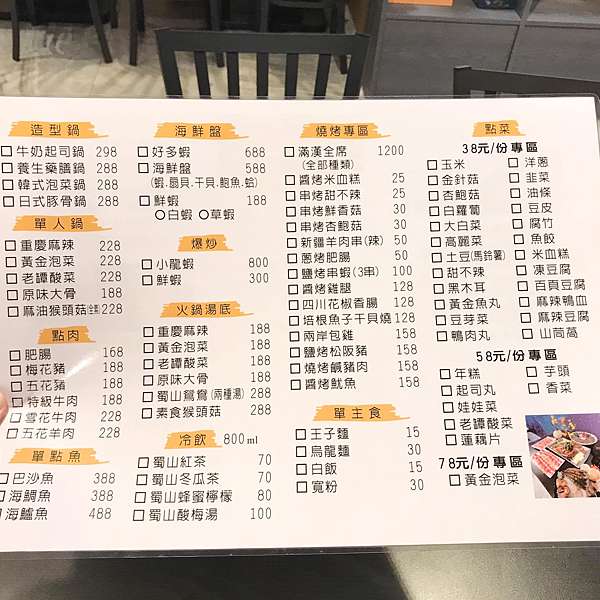 造型鍋
牛奶起司鍋 298
養生藥膳鍋 288
韓式泡菜鍋 288
日式豚骨鍋 288
單人鍋
重慶麻辣 228
黃金泡菜 228
老譚酸菜 228
原味大骨 228
麻油猴頭菇(全素) 228
點肉
肥腸 168
梅花豬 188
五花豬 188
特級牛肉 188
雪花牛肉 228
五花羊肉 228
單點魚
巴沙魚 388
海鯛魚 388
海鱸魚 488
海鮮盤
好多蝦 688
海鮮盤 588
(蝦.扇貝.干貝.鮑魚.蛤)
鮮蝦 188
白蝦 草蝦
爆炒
小龍蝦 800
鮮蝦 300
火鍋湯底
重慶麻辣 188
黃金泡菜 188
老譚酸菜 188
原味大骨 188
蜀山鴛鴦(兩種湯) 288
素食猴頭菇 288
冷飲 800ml
蜀山紅茶 70
蜀山冬瓜茶 70
蜀山蜂蜜檸檬 80
蜀山酸梅湯 100
燒烤專區
滿漢全席 1200
(全部種類)
醬烤米血糕 25
串烤甜不辣 25
串烤鮮香菇 30
串烤杏鮑菇 30
新疆羊肉串(辣) 50
蔥烤肥腸 50
鹽烤串蝦(3串) 100
醬烤雞腿 128
四川花椒香腸 128
培根魚子干貝燒 128
兩岸包雞 158
鹽烤松阪豬 158
燒烤鹹豬肉 158
醬烤魷魚 158
單主食
王子麵 15
烏龍麵 15
白飯 15
寬粉 30
點菜
38元/份專區
玉米
金針菇
杏鮑菇
白蘿蔔
大白菜
高麗菜
土豆(馬鈴薯)
甜不辣
黑木耳
黃金魚丸
豆芽菜
鴨肉丸
洋蔥
韭菜
油條
豆皮
腐竹
魚餃
米血糕
凍豆腐
百頁豆腐
麻辣鴨血
麻辣豆腐
山茼萵
58元/份專區
年糕
起司丸
娃娃菜
老譚酸菜
蓮藕片
芋頭
香菜
78元/份專區
黃金泡菜